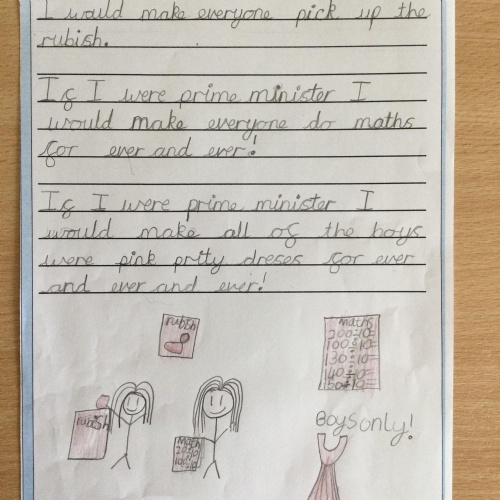 I would make everyone pick up the
rubish.
If I were prime minister I
would make everyone do maths
for ever and ever!
If I were prime minister I
would make all of the boys
were pink prity dreses for ever
and ever and ever!
rubish
maths
200÷10=
100÷10=
130÷10=
140÷10=
150÷10=
rubish
Math
Boys only!